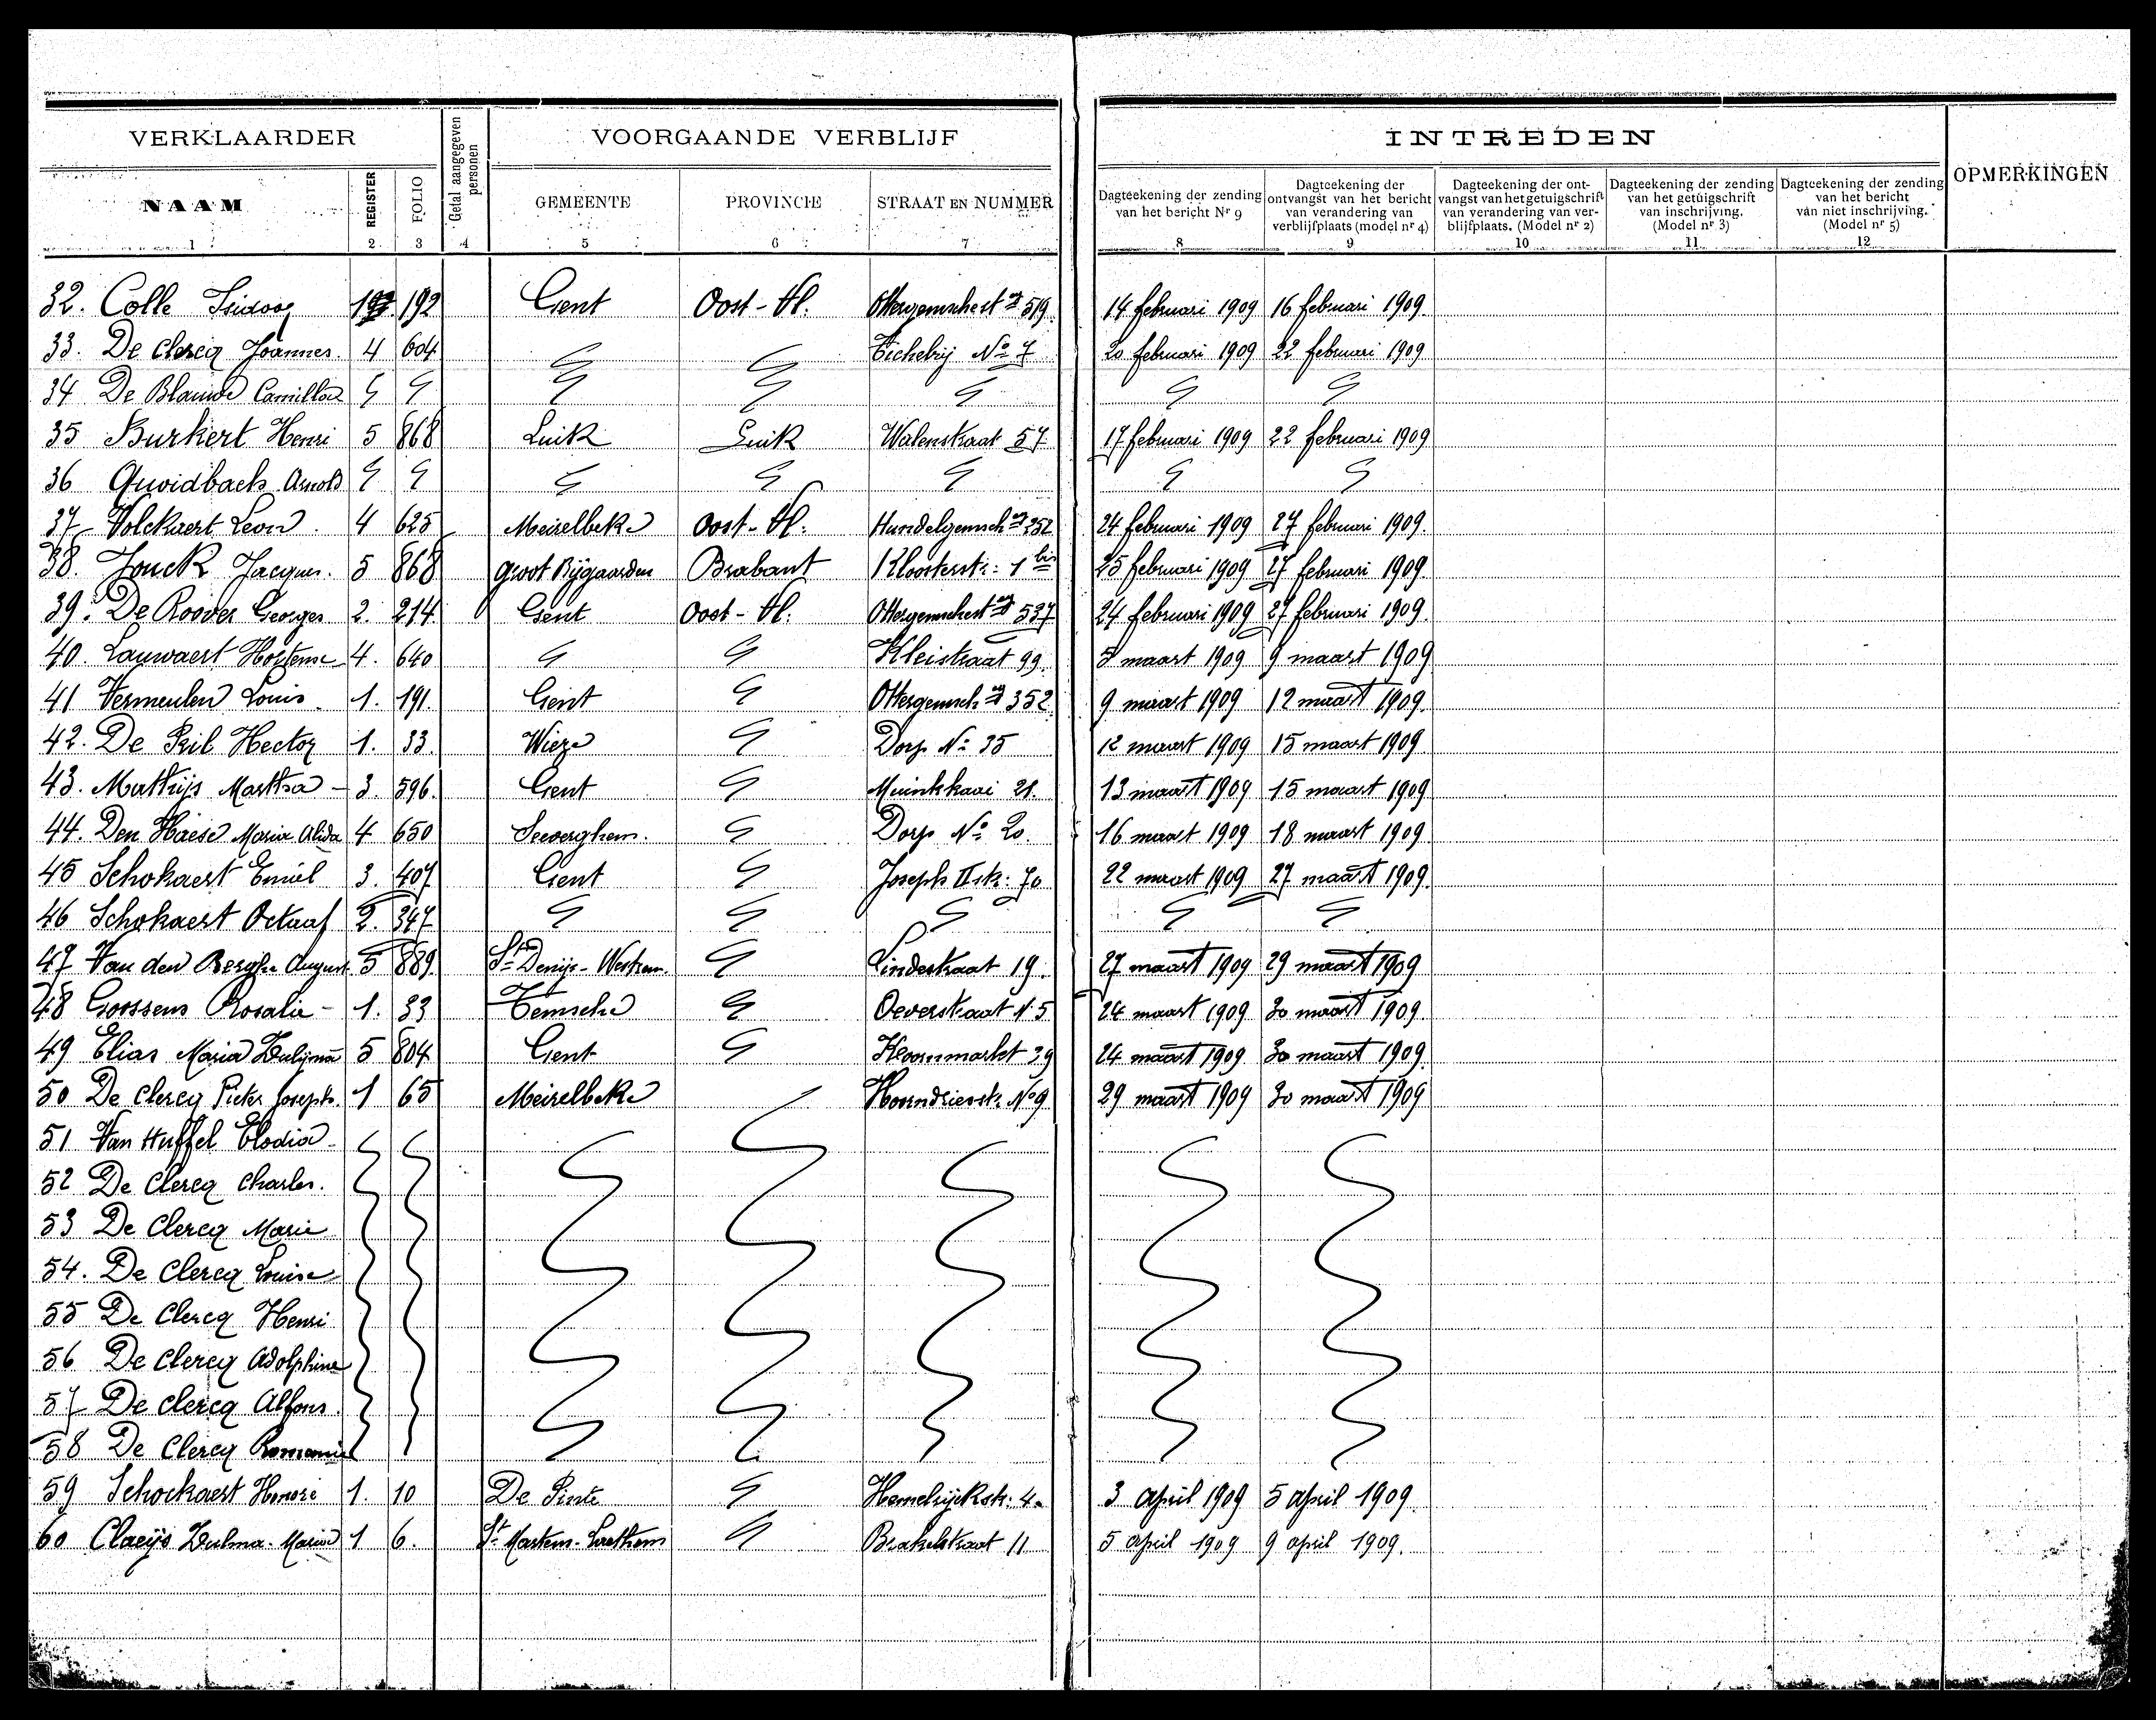 VERKLAARDER Getal aangegeven personen VOORGAANDE VERBLIJF INTREDEN OPMERKINGEN
NAAM REGISTER FOLIO GEMEENTE PROVINCIE STRAAT EN NUMMER Dagteekening der zending van het bericht Nr 9 Dagteekening der ontvangst van het bericht van verandering van verblijfplaats (model nr 4) Dagteekening der ontvangst van het getuigschrift van verandering van verblijfplaats. (Model nr 2) Dagteekening der zending van het getuigschrift van inschrijving. (Model nr 3) Dagteekening der zending van het bericht van niet inschrijving. (Model nr 5)
1 2 3 4 5 6 7 8 9 10 11 12
32. Colle Isidoor 192 Gent Oost-Vl. 519 14 februari 1909 16 februari 1909
33. De Clercq Joannes. 4 604 Tichelrij No 7 20 februari 1909 22 februari 1909
34 De Blauwe
35 Burkert Henri 5 868 Luik Luik Walenstraat 57 17 februari 1909 22 februari 1909
36 Arnold
37 Volckaert Leon. 4 625 Meirelbeke Oost-Vl. 352 24 februari 1909 27 februari 1909.
38. Jonck Jacques. 5 868 Groot Bijgaarden Brabant Kloosterstr: 1 bis 25 februari 1909 27 februari 1909
39. De Roover Georges 2. 214 Gent Oost-Vl. 537 24 februari 1909 27 februari 1909.
40. Lauwaert Hortense 4. 640 Kleistraat 99. maart 1909 9 maart 1909
41 Vermeulen Louis. 1. 191. Gent 352 9 maart 1909 12 maart 1909.
42. De Pril Hector 1. 33. Wieze Dorp No 35 12 maart 1909 15 maart 1909
43. Mathijs Martha - 3. 596. Gent Muinkkaai 21. 13 maart 1909 15 maart 1909
44. Den Haese Maria Alida 4 650 Seeverghem. Dorp No 20. 16 maart 1909 18 maart 1909
45 Schokaert Emiel 3. 407 Gent Joseph II str: 70 22 maart 1909 27 maart 1909.
46 Schokaert Octaaf 2. 347
47 Van den Berghe August 5 889. St Denijs-Westrem. Lindestraat 19. 27 maart 1909 29 maart 1909
48 Goossens Rosalie - 1. 33 Temsche Oeverstraat N. 5 24 maart 1909 30 maart 1909.
49 Elias Maria 5 804 Gent Koornmarkt 39 24 maart 1909 30 maart 1909.
50 De Clercq Pieter Joseph. 1 65 Meirelbeke No 9 29 maart 1909 30 maart 1909
51 Van Huffel Elodia
52 De Clercq Charles.
53 De Clercq Marie
54. De Clercq Louise
55 De Clercq Henri
56 De Clercq Adolphine
57 De Clercq Alfons.
58 De Clercq Romanie
59 Schockaert Honoré 1. 10 De Pinte Hemelrijckstr. 4. 3 april 1909 5 april 1909.
60 Claeijs Zulma-Maria 1 6. St Martens-Laethem Brakelstraat 11 5 april 1909 9 april 1909.